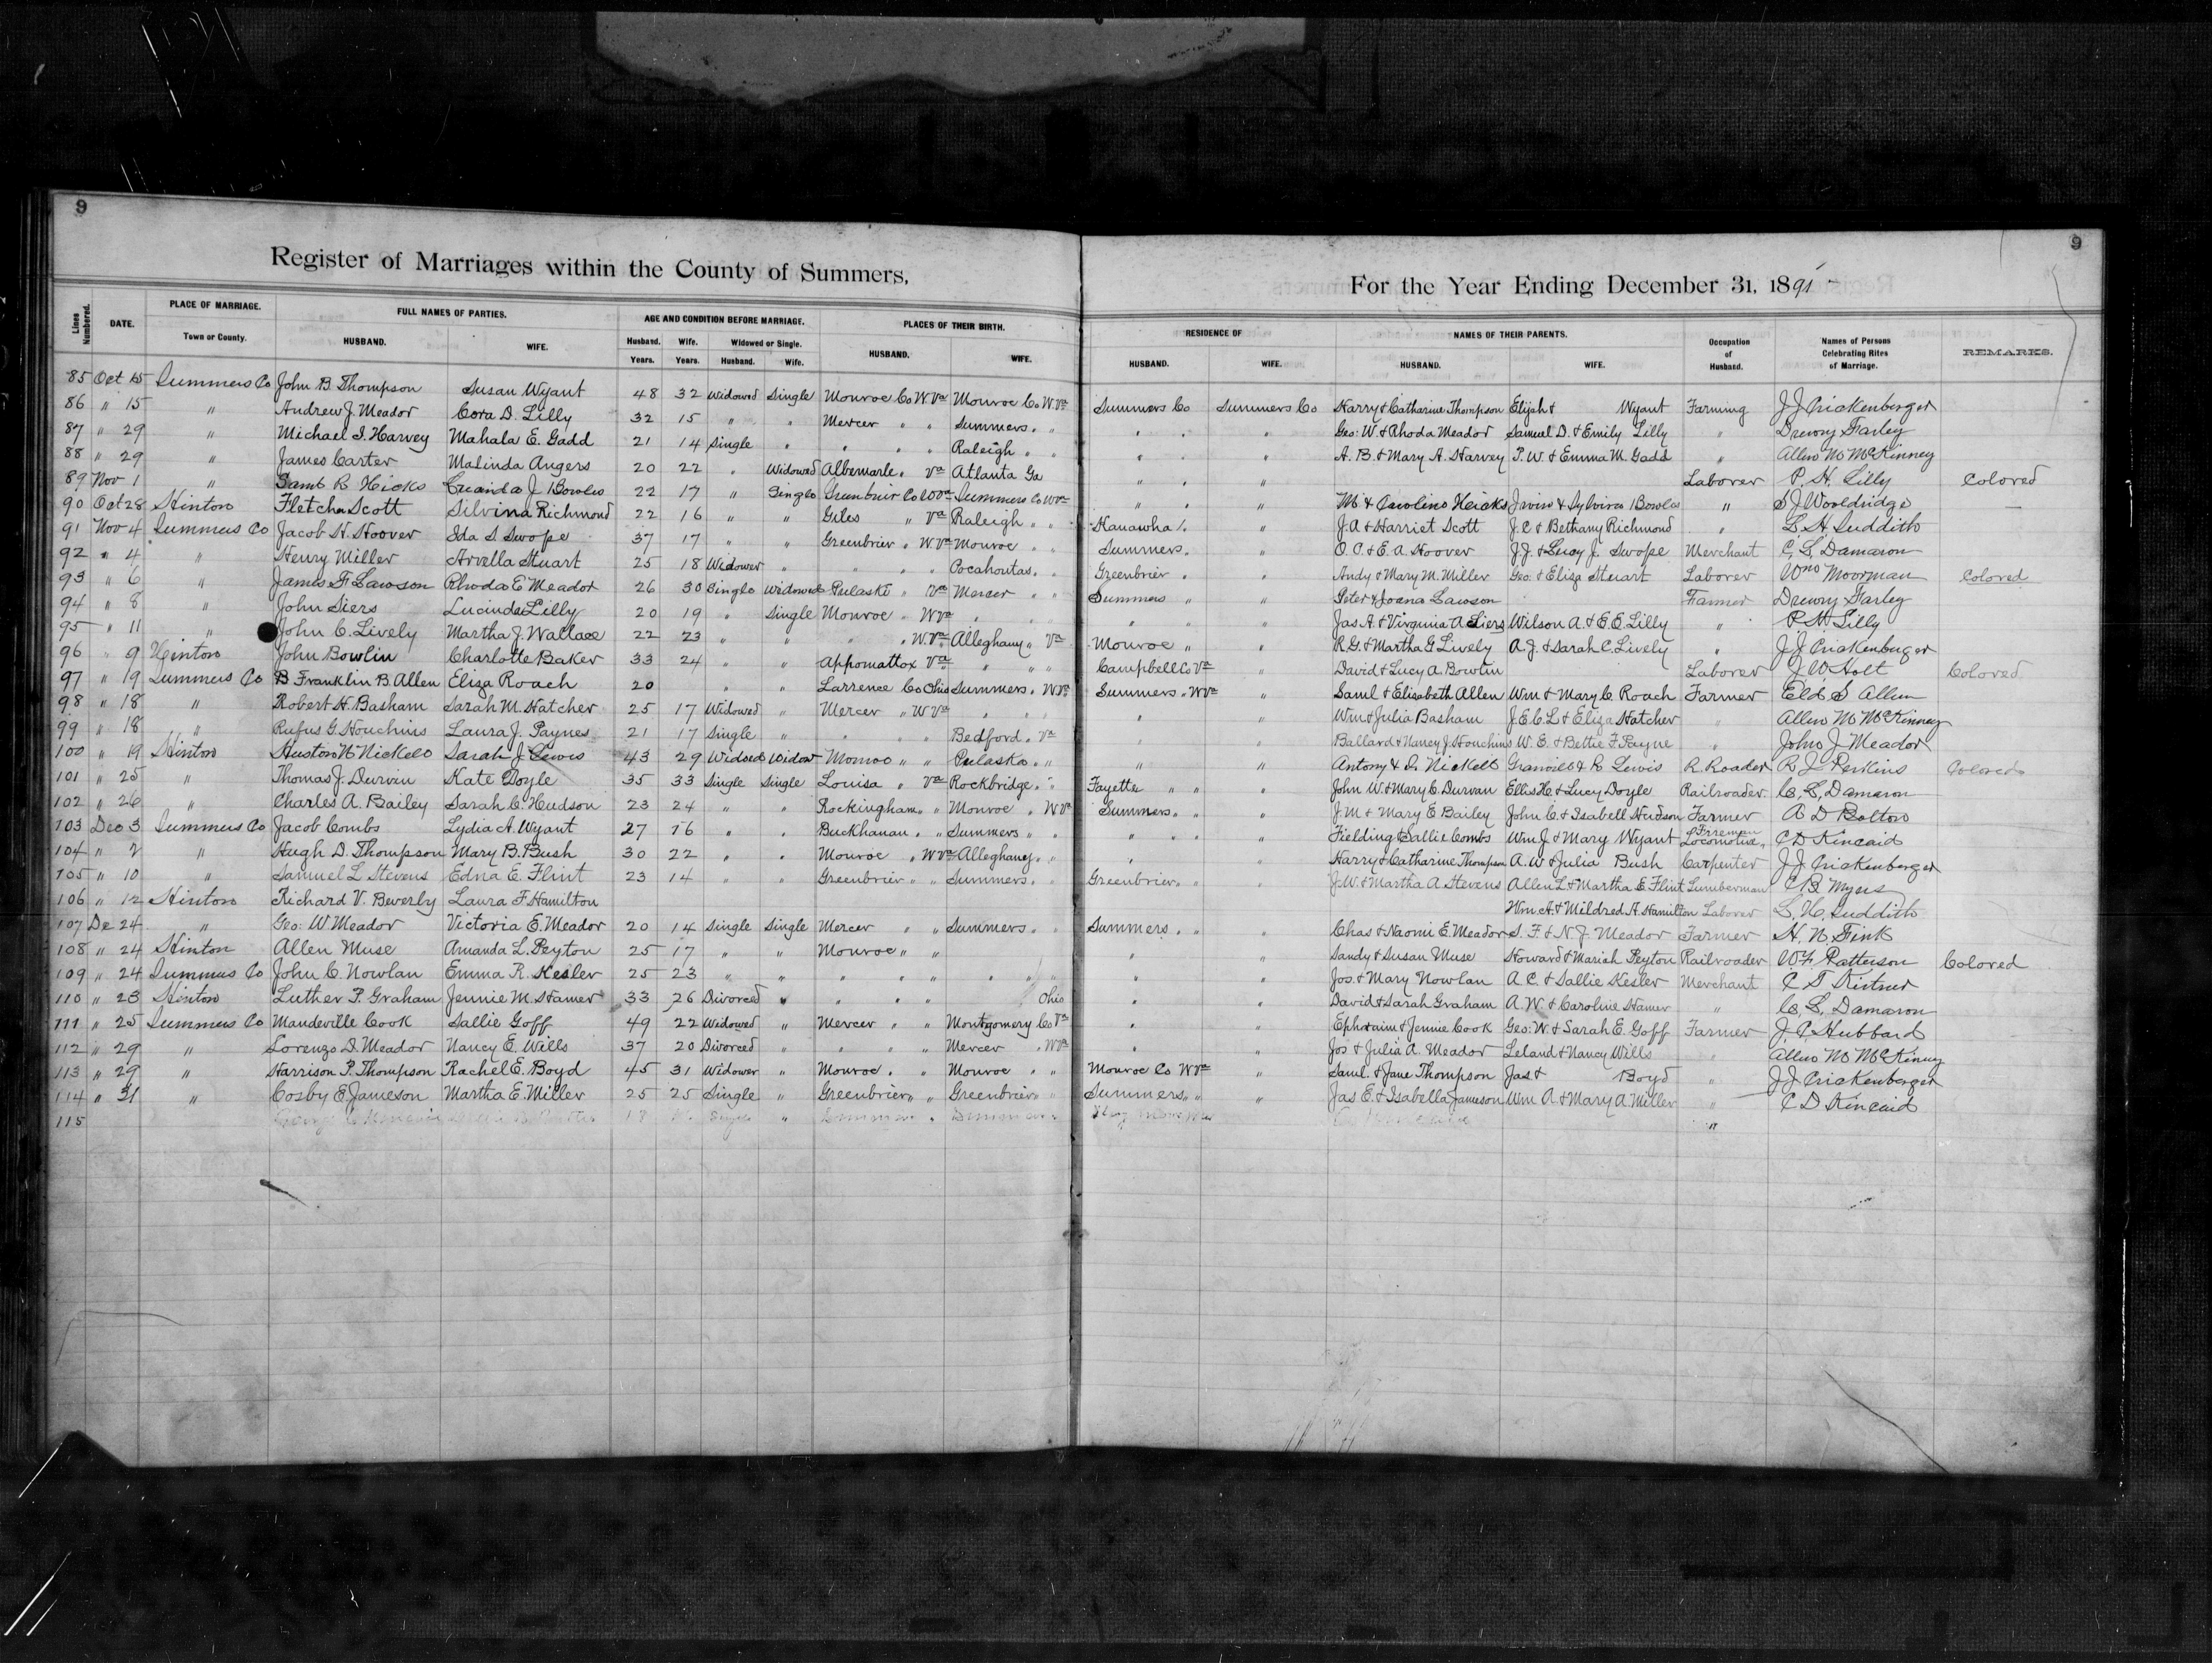 9
9
Register of Marriages within the County of Summers,
For the Year Ending December 31, 1891
Lines Numbered.
DATE.
PLACE OF MARRIAGE.
Town or County.
FULL NAMES OF PARTIES.
HUSBAND.
WIFE.
AGE AND CONDITION BEFORE MARRIAGE.
Husband.
Wife.
Widowed or Single.
Years.
Years.
Husband.
Wife.
PLACES OF THEIR BIRTH.
HUSBAND.
WIFE.
RESIDENCE OF
HUSBAND.
WIFE.
NAMES OF THEIR PARENTS.
HUSBAND.
WIFE.
Occupation of Husband.
Names of Persons Celebrating Rites of Marriage.
REMARKS.
85 Oct 15 Summers Co John B. Thompson Susan Wyant 48 32 Widowed Single Monroe Co W Va Monroe Co W. Va Summers Co Summers Co Harry & Catharine Thompson Elijah & Wyant Farming J J Crickenberger
86 " 15 " Andrew J. Meador Cora D. Lilly 32 15 " " Mercer " " Summers " " " " " Geo: W. & Rhoda Meador Samuel D. & Emily Lilly " Drewry Farley
87 " 29 " Michael I. Harvey Mahala E. Gadd 21 14 Single " " " " Raleigh " " " " " A. B. & Mary A. Harvey P. W. & Emma M. Gadd " Allen M McKinney
88 " 29 " James Carter Malinda Angers 20 22 " Widowed Albemarle " Va Atlanta Ga " " " Laborer P. H. Lilly Colored
89 Nov 1 " Saml R Hicks J Bowles 22 17 " Single Greenbrier Co W Va Summers Co W Va " " " M. & Caroline Hicks Irvin & Sylvira Bowles " S J Wooldridge —
90 Oct 28 Hinton Fletcher Scott Silvina Richmond 22 16 " " Giles " Va Raleigh " " Kanawha " " J. A & Harriet Scott J. C & Bethany Richmond " L. H. Suddith
91 Nov 4 Summers Co Jacob H. Hoover Ida S Swope 37 17 " " Greenbrier " W. Va Monroe " " Summers " " O. C. & E. A. Hoover J. J. & Lucy J. Swope Merchant C. L. Damaron
92 " 4 " Henry Miller Arvella Stuart 25 18 Widower " " " " Pocahontas " " Greenbrier " " Andy & Mary M. Miller Geo: & Eliza Stuart Laborer Wm Moorman Colored
93 " 6 " James F Lawson Rhoda E Meador 26 30 Single Widowed Pulaski " Va Mercer " " Summers " " Peter & Joana Lawson Farmer Drewry Farley
94 " 8 " John Siers Lucinda Lilly 20 19 " Single Monroe " W Va " " " " " " Jas. A & Virginia A Siers Wilson A. & E. E. Lilly " P. H. Lilly
95 " 11 " John C. Lively Martha J. Wallace 22 23 " " " " W. Va Alleghany " Va Monroe " " R. G. & Martha G Lively A. J. & Sarah C. Lively " J J Crickenberger
96 " 9 Hinton John Bowlin Charlotte Baker 33 24 " " Appomattox Va " " " Campbell Co Va " David & Lucy A. Bowlin Laborer J W Holt Colored
97 " 19 Summers Co B Franklin B. Allen Eliza Roach 20 " " Larrence Co Ohio Summers " W Va Summers " W Va " Saml & Elisabeth Allen Wm & Mary C. Roach Farmer Eld S Allen
98 " 18 " Robert H. Basham Sarah M. Hatcher 25 17 Widowed " Mercer " W Va " " " " " Wm & Julia Basham J. E. C. L & Eliza Hatcher " Allen M McKinney
99 " 18 " Rufus G. Houchins Laura J. Paynes 21 17 Single " " " " Bedford " Va " " Ballard & Nancy J. Houchins W. E. & Bettie F. Payne " John J Meador
100 " 19 Hinton Huston N Nickell Sarah J Lewis 43 29 Widowed Widow Monroe " " Pulaski " " " " Antony & S. Nickell Granvill & R Lewis R. Roader R J Perkins Colored
101 " 25 " Thomas J. Durvin Kate Doyle 35 33 Single Single Louisa " Va Rockbridge " " Fayette " " " John W. & Mary C. Durvan Ellis H. & Lucy Doyle Railroader C. L. Damaron
102 " 26 " Charles A. Bailey Sarah C. Hudson 23 24 " " Rockingham " " Monroe " W Va Summers " " " J. M & Mary E Bailey John C. & Isabell Hudson Farmer A D Bolton
103 Dec 3 Summers Co Jacob Combs Lydia A. Wyant 27 16 " " Buckhanan " " Summers " " " " " " Fielding & Sallie Combs Wm J & Mary Wyant Fireman Locomotive C D Kincaid
104 " 2 " Hugh D. Thompson Mary B. Bush 30 22 " " Monroe " W Va Alleghany " " " " Harry & Catharine Thompson A. W & Julia Bush Carpenter J J Crickenberger
105 " 10 " Samuel L Stevens Edna E. Flint 23 14 " " Greenbrier " " Summers " " Greenbrier " " " J. W. & Martha A. Stevens Allen L & Martha E. Flint Lumberman C B Myers
106 " 12 Hinton Richard V. Beverly Laura F. Hamilton Wm A. & Mildred A. Hamilton Laborer L. H. Suddith
107 De 24 " Geo: W Meador Victoria E. Meador 20 14 Single Single Mercer " " Summers " " Summers " " " Chas & Naomi E. Meador S. F. & N. J. Meador Farmer H. N. Fink
108 " 24 Hinton Allen Muse Amanda L. Peyton 25 17 " " Monroe " " " " Sandy & Susan Muse Howard & Mariah Peyton Railroader W. F. Patterson Colored
109 " 24 Summers Co John C. Nowlan Emma R. Kesler 25 23 " " " " " " " " " " Jos. & Mary Nowlan A. C. & Sallie Kesler Merchant C T Kirtner
110 " 23 Hinton Luther P. Graham Jennie M. Hamer 33 26 Divorced " " " " Ohio " " David & Sarah Graham A. W. & Caroline Hamer " C. L. Damaron
111 " 25 Summers Co Mandeville Cook Sallie Goff 49 22 Widowed " Mercer " " Montgomery Co Va " " Ephraim & Jennie Cook Geo: W. & Sarah E. Goff Farmer J. C. Hubbard
112 " 29 " Lorenzo D. Meador Nancy E. Wills 37 20 Divorced " " " " Mercer " W Va " " Jos & Julia A. Meador Leland & Nancy Wills " Allen M McKinney
113 " 29 " Harrison P. Thompson Rachel E. Boyd 45 31 Widower " Monroe " " Monroe " " Monroe Co W Va " Saml. & Jane Thompson Jas & Boyd " J J Crickenberger
114 " 31 " Cosby E. Jameson Martha E. Miller 25 25 Single " Greenbrier " " Greenbrier " " Summers " " " Jas E. & Isabella Jameson Wm A & Mary A Miller " C D Kincaid
115 18 "